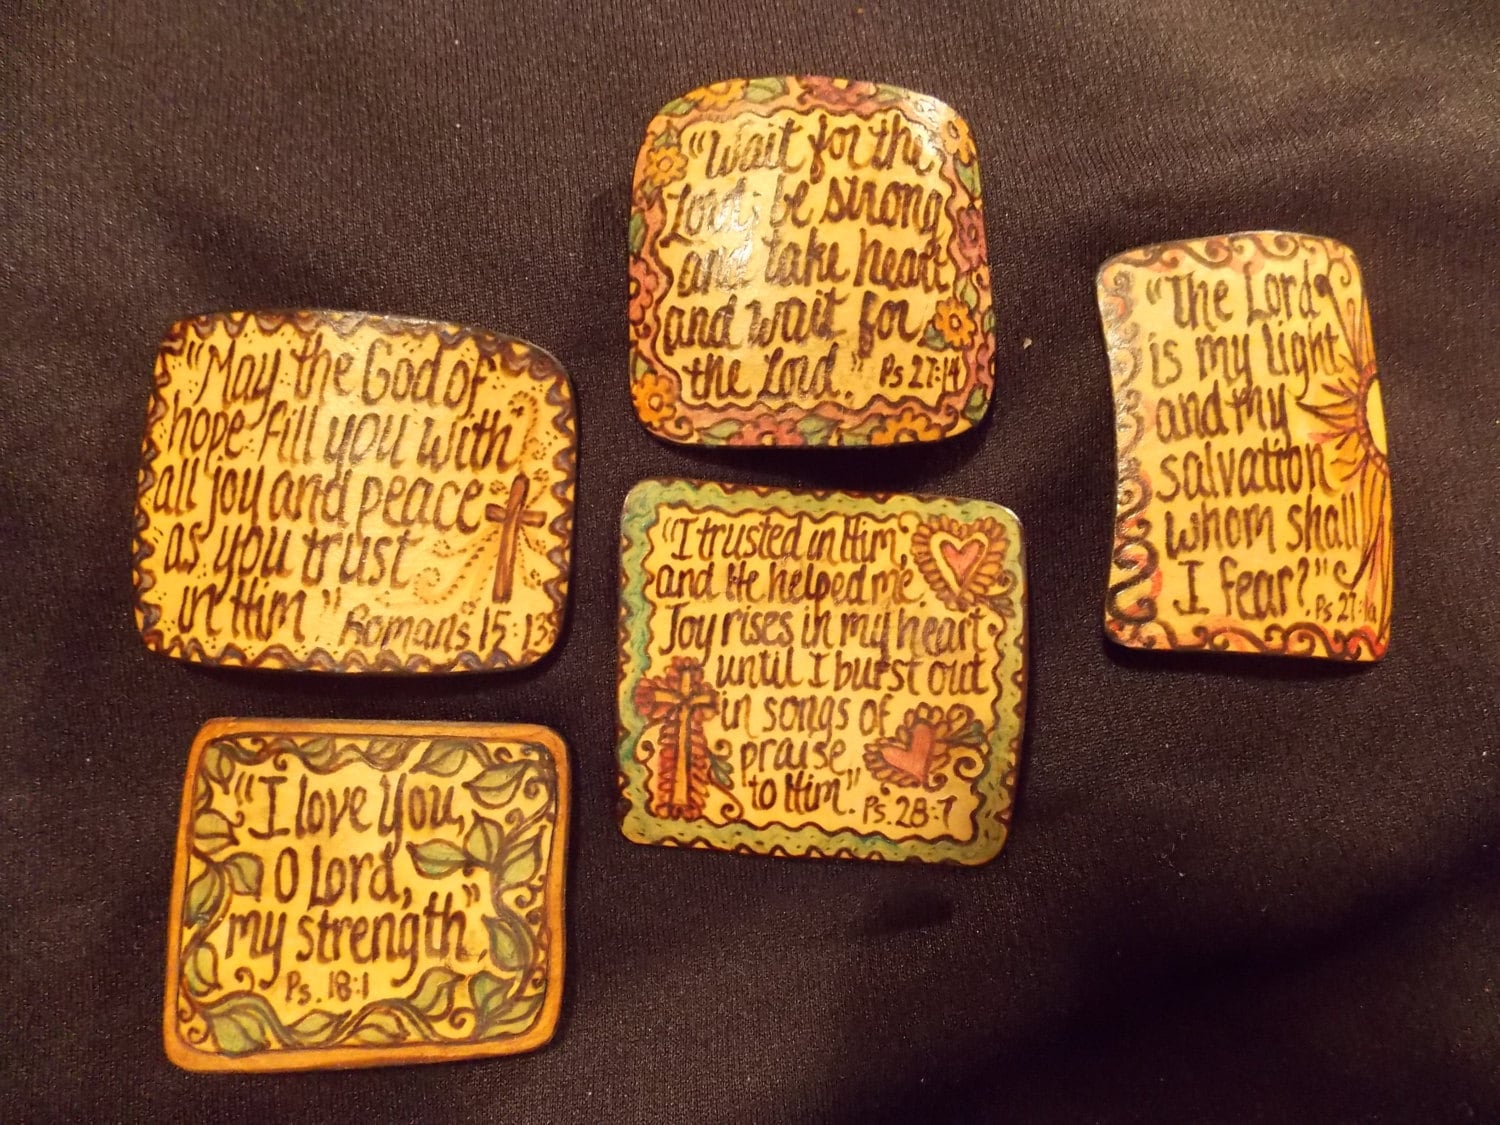 "Wait for the
Lord; be strong
and take heart
and wait for
the Lord." Ps 27:14
"May the God of
hope fill you with
all joy and peace
as you trust
in Him" Romans 15:13
"The Lord
is my light
and my
salvation
whom shall
I fear?" Ps 27:1a
"I trusted in Him,
and He helped me.
Joy rises in my heart
until I burst out
in songs of
praise
to Him". Ps. 28:7
"I love You,
O Lord,
my strength".
Ps. 18:1